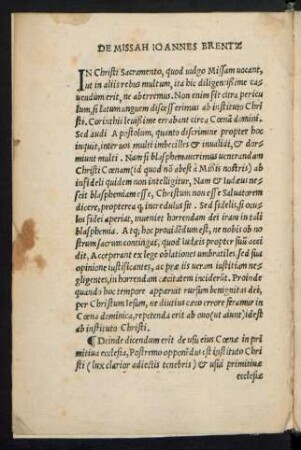 DE MISSAH IOANNES BRENTZ
IN Christi Sacramento, quod uulgo Missam uocant,
ut in aliis rebus multum, ita hic diligentißime ca=
uendum erit, ne aberremus. Non enim sit citra pericu
lum si latum unguem discesserimus ab instituto Chri
sti. Corinthii leuißime errabant circa Cœnã domini.
Sed audi Apostolum, quanto discrimine propter hoc
inquit, inter uos multi imbecilles & inualidi, & dor=
miunt multi. Nam si blasphemauerimus uenerandam
Christi Cœnam (id quod nõ abest à Missis nostris) ab
infideli quidem non intelligitur, Nam & Iudæus ne=
scit blasphemiam esse, Christum non esse Saluatorem
dicere, propterea q; incredulus sit. Sed fidelis, si ocu=
los fidei aperiat, inueniet horrendam dei iram in tali
blasphemia. Atq; hoc prouidẽdum est, ne nobis ob no
strum sacrum contingat, quod Iudæis propter suũ acci
dit, Acceperant ex lege oblationes umbratiles sed sua
opinione iustificantes, ac præ iis ueram iustitiam ne=
gligentes, in horrendam cæcitatem inciderunt. Proinde
quando hoc tempore apparuit rursum benignitas dei,
per Christum Iesum, ne diutius cæco errore feramur in
Cœna dominica, repetenda erit ab ouo (ut aiunt) id est
ab instituto Christi.
¶ Deinde dicendum erit de usu eius Cœnæ in pri
mitiua ecclesia, Postremo opponẽdus est instituto Chri
sti (lux clarior adiectis tenebris) & usui primitiuæ
ecclesiæ